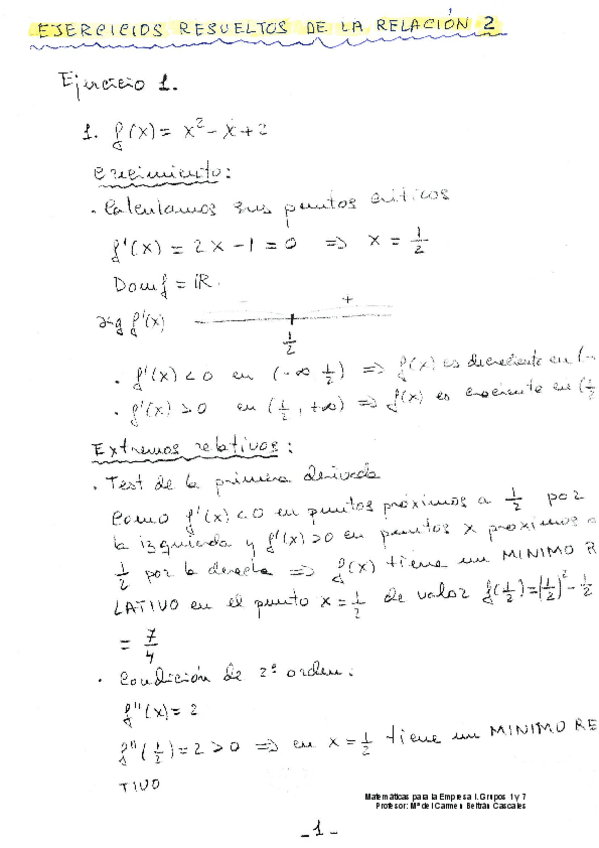 EJERCICIOS RESUELTOS DE LA RELACIÓN 2
Ejercicio 1.
1. f(x) = x² - x + 2
Crecimiento:
· Calculamos sus puntos críticos
f'(x) = 2x - 1 = 0 ⇒ x = 1/2
Dom f = ℝ.
+
sig f'(x)
1/2
· f'(x) < 0 en (-∞ 1/2) ⇒ f(x) es decreciente en (-
· f'(x) > 0 en (1/2, +∞) ⇒ f(x) es creciente en (1/2
Extremos relativos:
· Test de la primera derivada
Como f'(x) < 0 en puntos próximos a 1/2 por
la izquierda y f'(x) > 0 en puntos x proximos a
1/2 por la derecha ⇒ f(x) tiene un MINIMO R
LATIVO en el punto x = 1/2 de valor f(1/2) = (1/2)² - 1/2
= 7/4
· Condición de 2º orden:
f''(x) = 2
f''(1/2) = 2 > 0 ⇒ en x = 1/2 tiene un MINIMO RE
TIVO
Matemáticas para la Empresa I. Grupos 1 y 7
Profesor: Mª del Carmen Beltrán Cascales
- 1 -